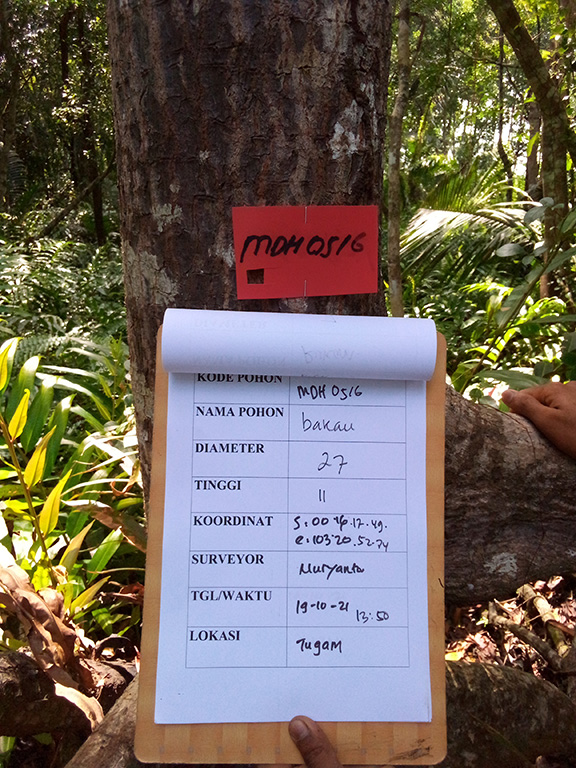 MDH 0516
KODE POHON MDH 0516
NAMA POHON bakau
DIAMETER 27
TINGGI 11
KOORDINAT S:00
e:103°20.52.74
SURVEYOR Nuryanto
TGL/WAKTU 19-10-21 13:50
LOKASI Tugam